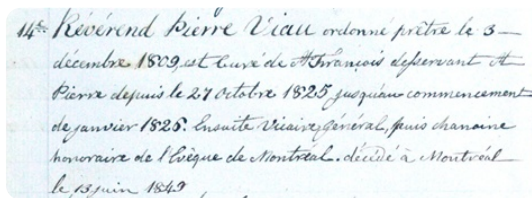 14e Révérend Pierre Viau ordonné prêtre le 3
décembre 1809, est Curé de St François desservant St
Pierre depuis le 27 Octobre 1825 jusqu'au commencement
de janvier 1826. Ensuite Vicaire Général, puis chanoine
honoraire de l'Evêque de Montréal. décédé à Montréal
le 13 juin 1849